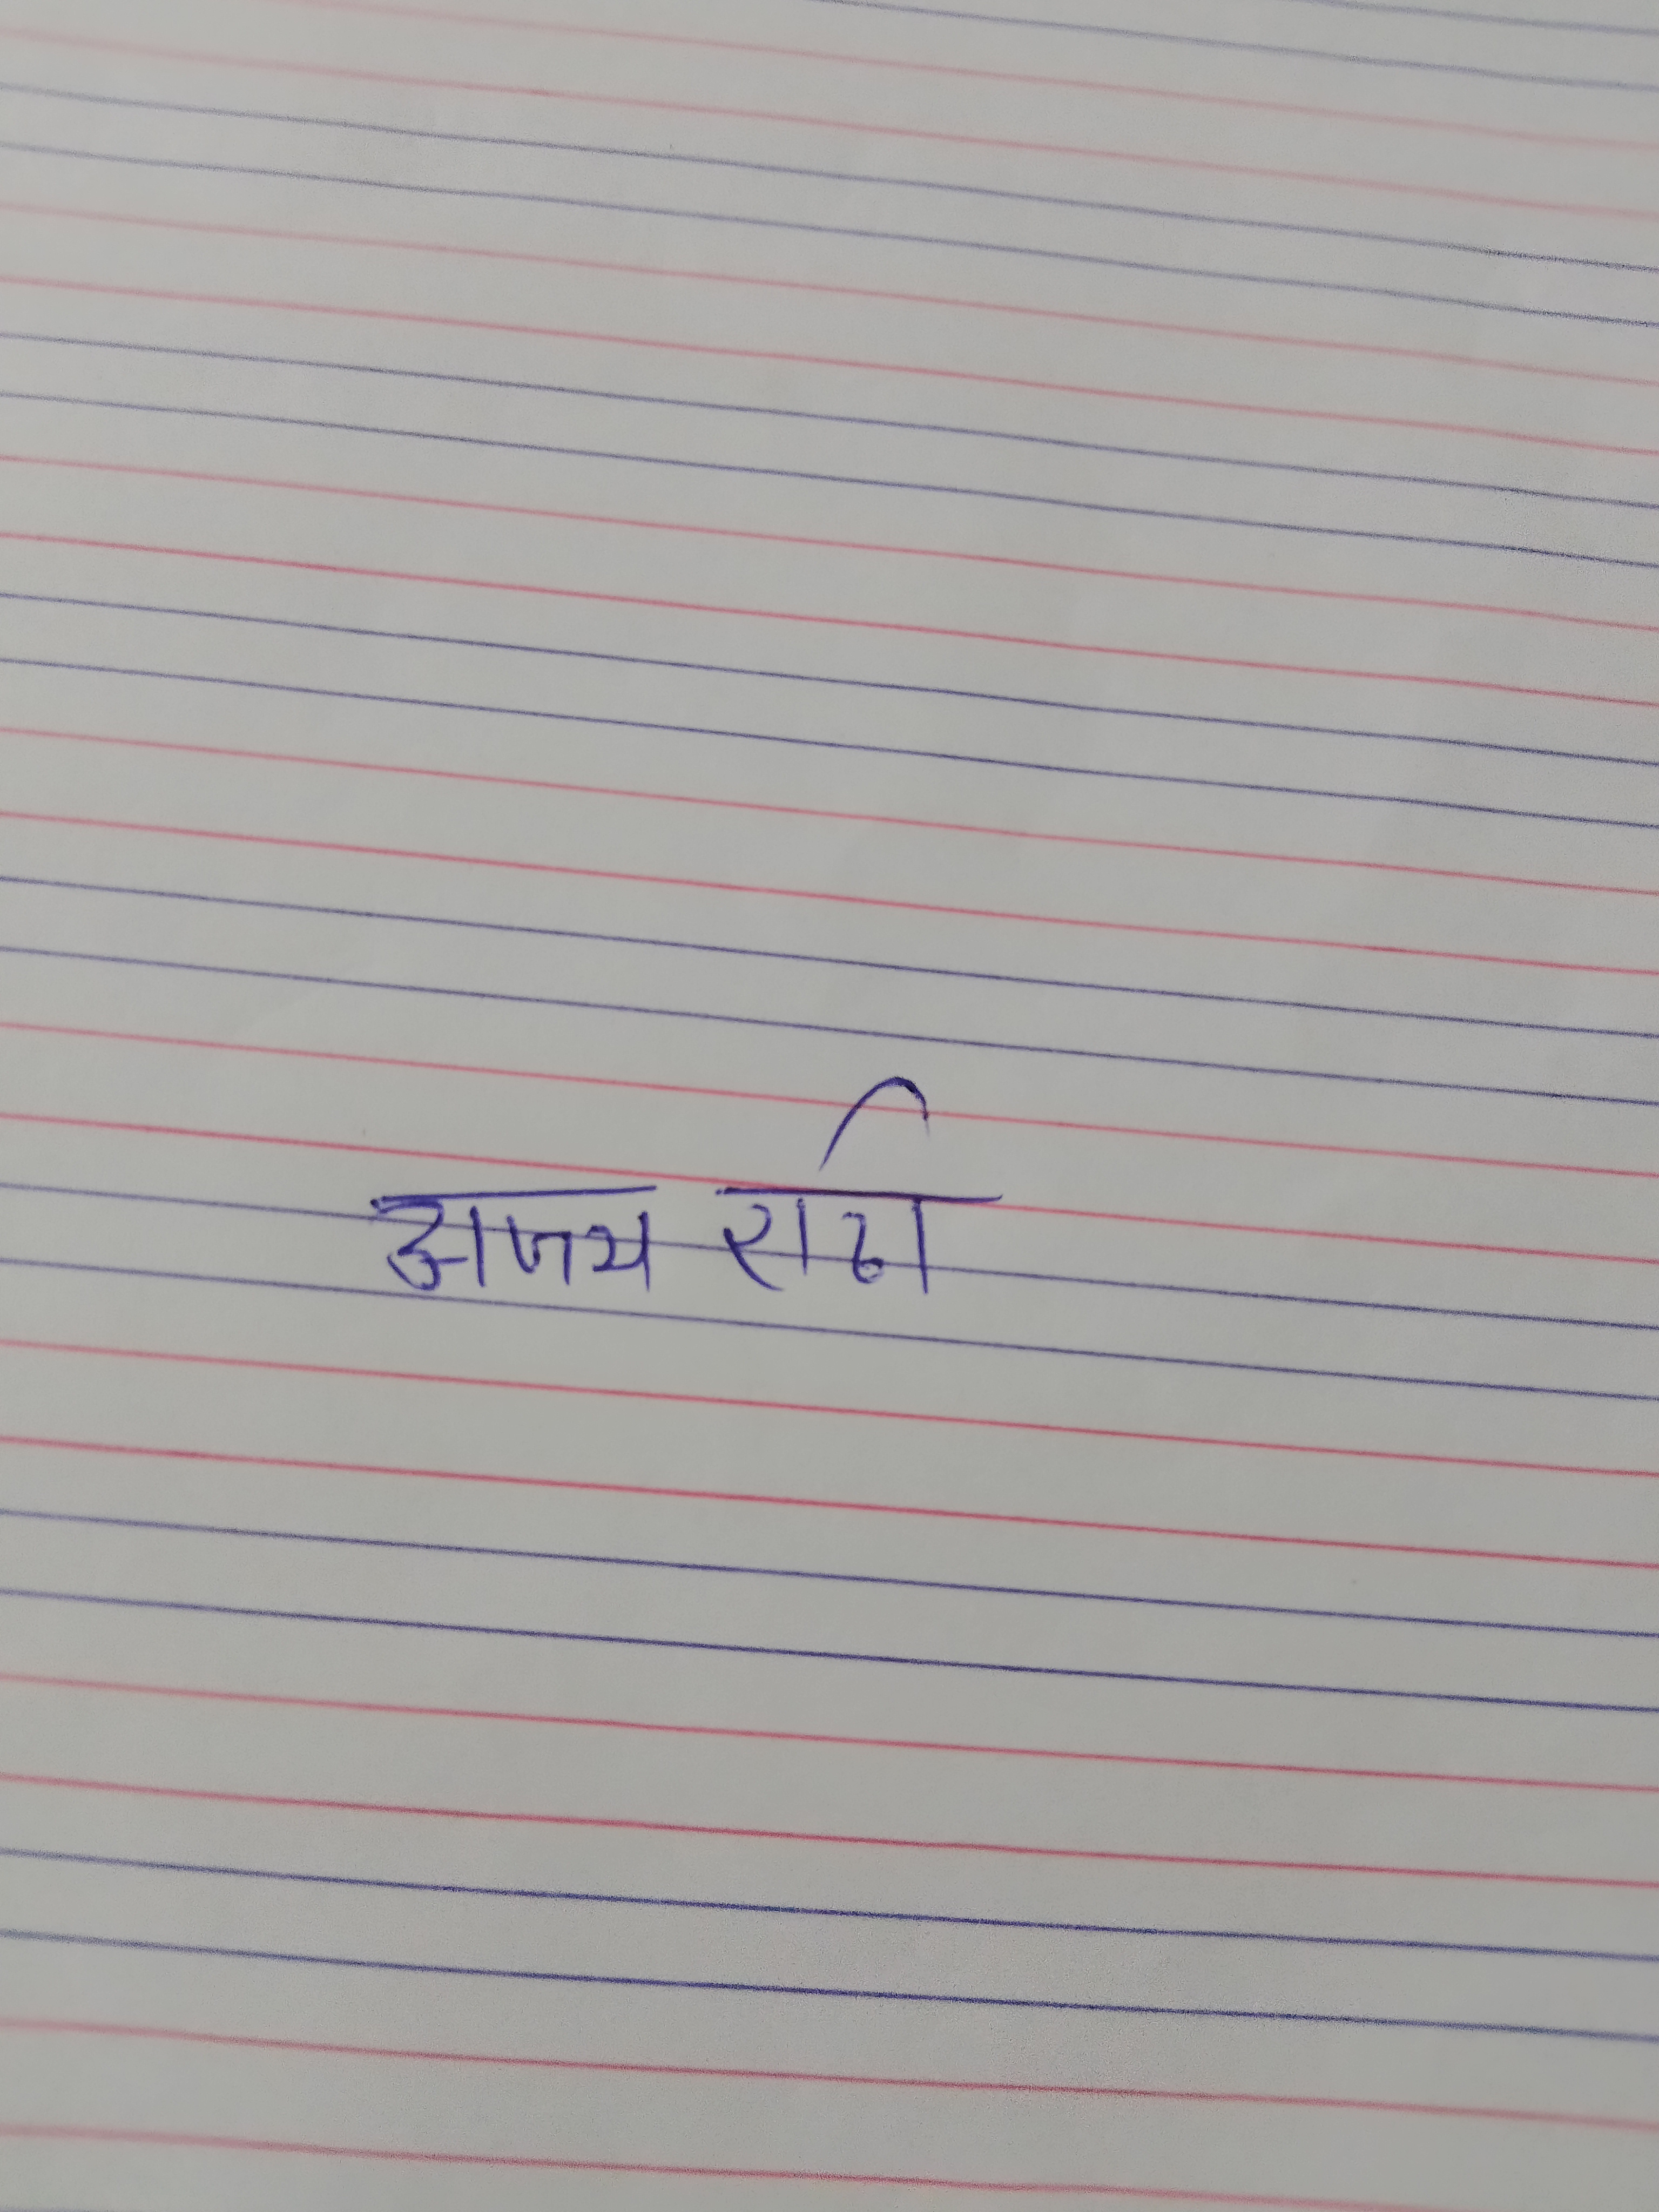 अजय राठी